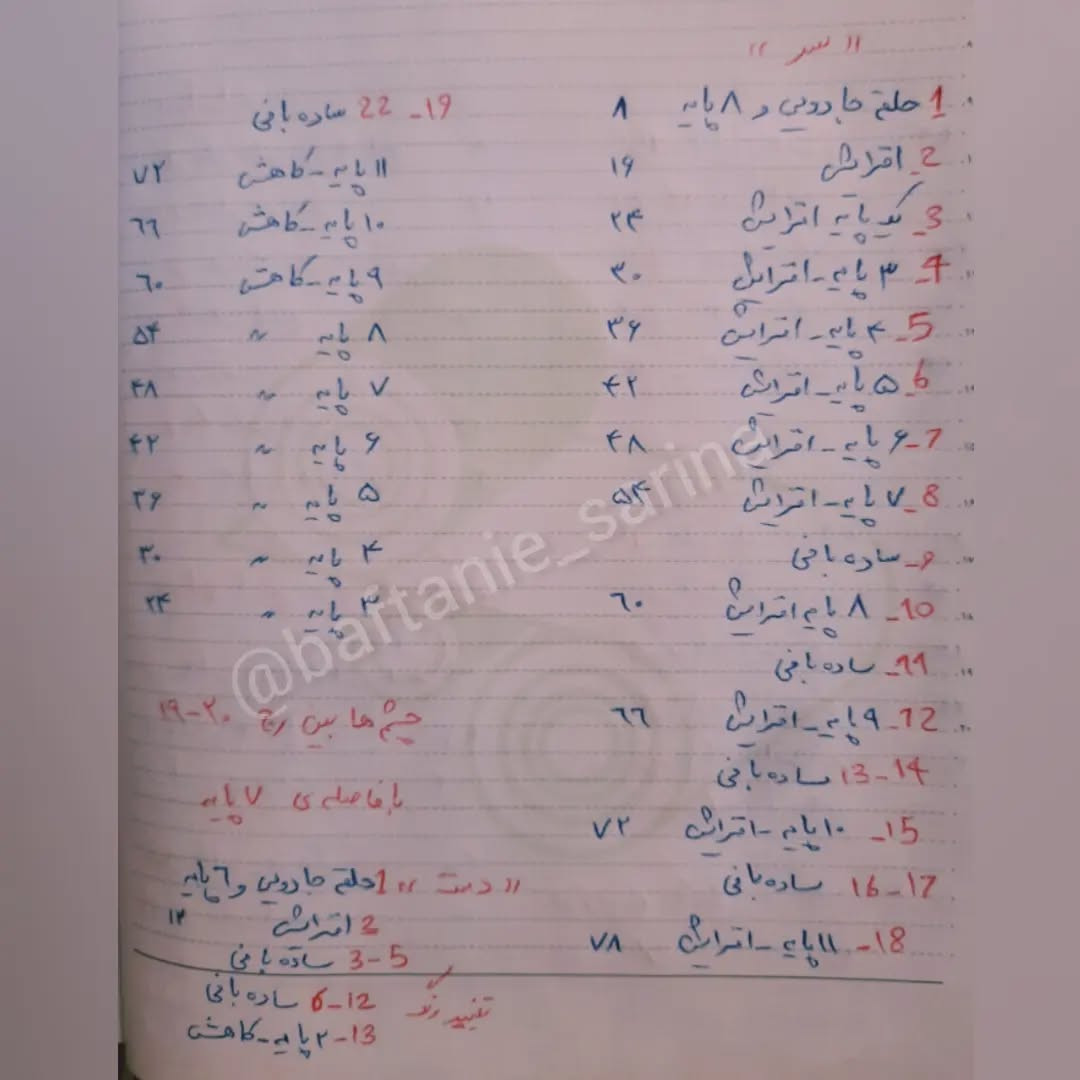 "سر"
1 حلقه جادویی و ۸ پایه ۸
2_ افزایش ۱۶
3_ یک پایه افزایش ۲۴
4_ ۳ پایه_ افزایش ۳۰
5_ ۴ پایه_ افزایش ۳۶
6_ ۵ پایه_ افزایش ۴۲
7_ ۶ پایه_ افزایش ۴۸
8_ ۷ پایه_ افزایش ۵۴
۹_ ساده بافی
10_ ۸ پایه افزایش ۶۰
11_ ساده بافی
12_ ۹ پایه_ افزایش ۶۶
13_14 ساده بافی
15_ ۱۰ پایه_ افزایش ۷۲
16_17 ساده بافی
18_ ۱۱ پایه_ افزایش ۷۸
19_ 22 ساده بافی
۱۱ پایه_ کاهش ۷۲
۱۰ پایه_ کاهش ۶۶
۹ پایه_ کاهش ۶۰
۸ پایه " ۵۴
۷ پایه " ۴۸
۶ پایه " ۴۲
۵ پایه " ۳۶
۴ پایه " ۳۰
۳ پایه " ۲۴
چشم ها بین رج ۲۰-۱۹
با فاصله ی ۷ پایه
"دست" 1 حلقه جادویی و ۶ پایه
2 افزایش ۱۲
3-5 ساده بافی
تغییر رنگ
6_12 ساده بافی
13_ ۲ پایه_ کاهش
@baftanie_sarina